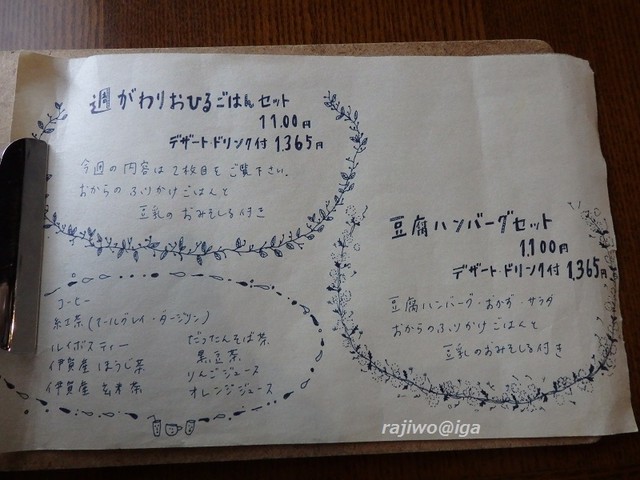 週がわりおひるごはんセット
1,100円
デザート・ドリンク付 1,365円
今週の内容は2枚目をご覧下さい。
おからのふりかけごはんと
豆乳のおみそしる付き
豆腐ハンバーグセット
1,100円
デザート・ドリンク付 1,365円
豆腐ハンバーグ・おかず・サラダ
おからのふりかけごはんと
豆乳のおみそしる付き
コーヒー
紅茶(アールグレイ・ダージリン)
ルイボスティー
伊賀産 ほうじ茶
伊賀産 玄米茶
だったんそば茶
黒豆茶
りんごジュース
オレンジジュース
rajiwo@iga